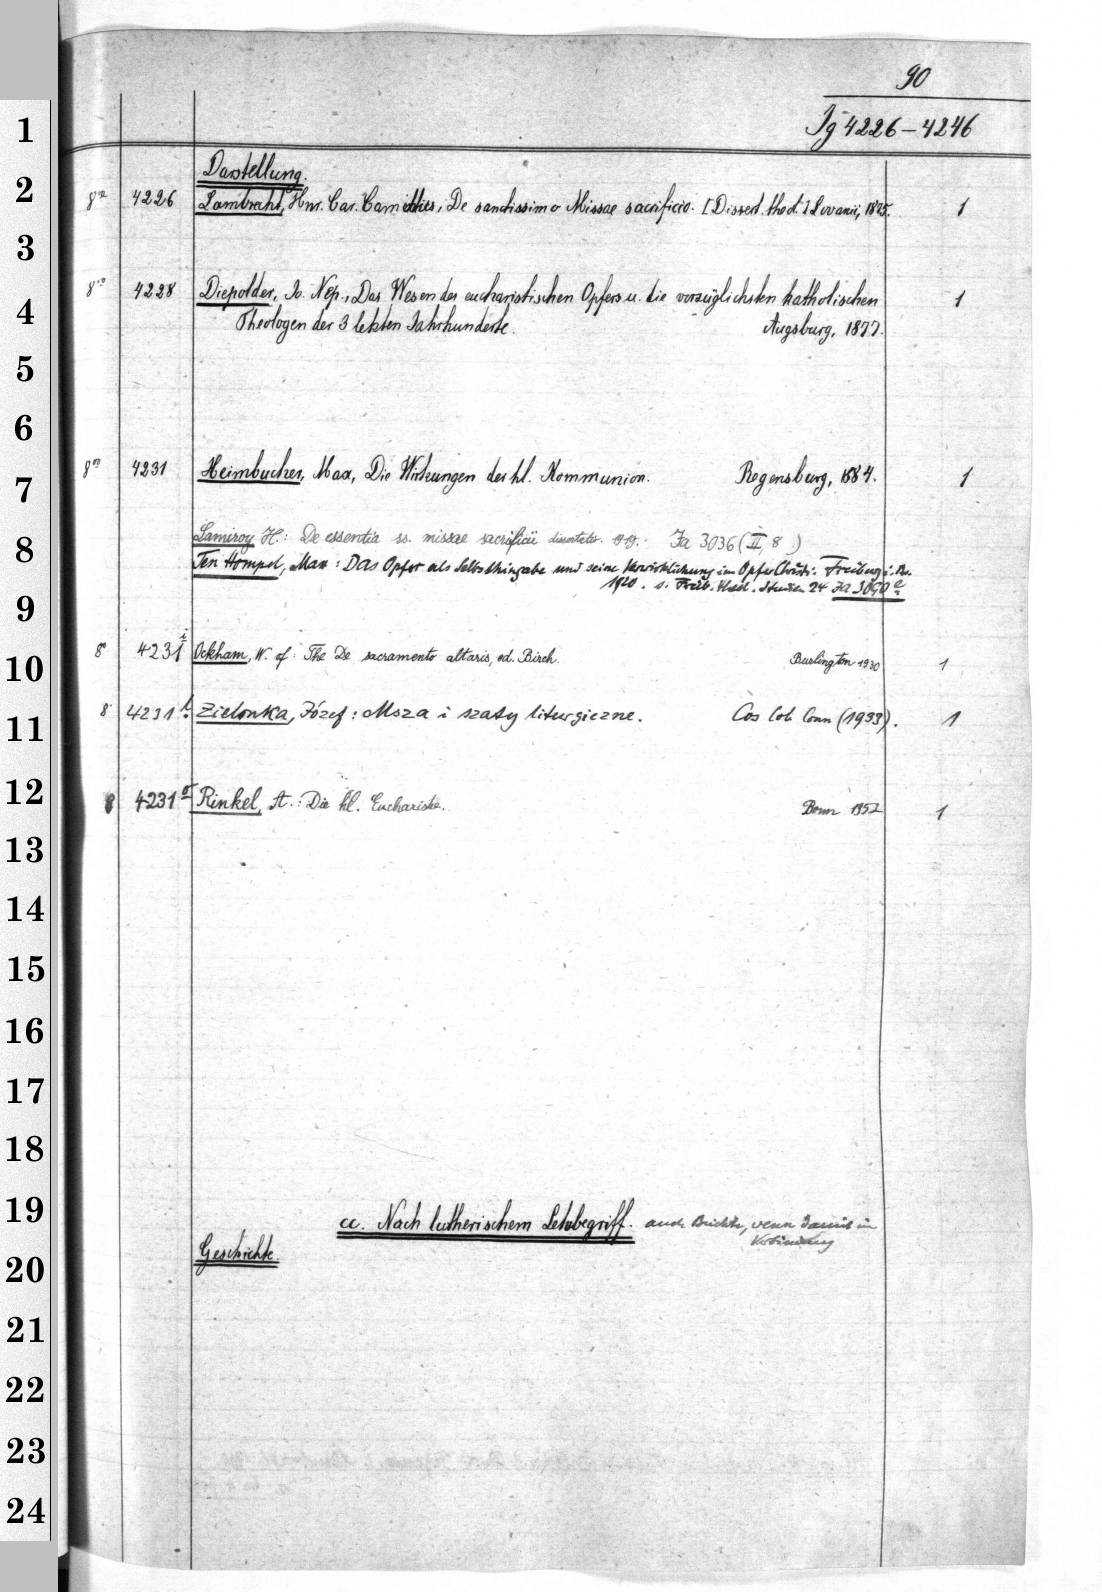 90
Jg 4226-4246
1
2
3
4
5
6
7
8
9
10
11
12
13
14
15
16
17
18
19
20
21
22
23
24
Darstellung.
8vo 4226 Lambrecht, Hnr. Car. Camillus, De sanctissimo Missae sacrificio. [Dissert. theol.] Lovanii, 1875. 1
8vo 4228 Diepolder, Jo. Nep., Das Wesen des eucharistischen Opfers u. die vorzüglichsten katholischen 1
Theologen der 3 letzten Jahrhunderte. Augsburg, 1877.
8vo 4231 Heimbucher, Max, Die Wirkungen der hl. Kommunion. Regensburg, 1884. 1
Lamiroy H.: De essentia ss. missae sacrificii Ja 3036 (II, 8)
Ten Hompel, Max: Das Opfer als Selbsthingabe und seine Verwirklichung im Opfer Christi. Freiburg i. Br.
1920. s. Freib. theol. Studien 24 Ja 3090 e
8o 4231 i Ockham, W. of: The De sacramento altaris, ed. Birch. Burlington 1930 1
8 4231 Zielonka, Józef: Msza i szaty liturgiczne. Cos Cob Conn (1933). 1
8 4231 Rinkel, A.: Die hl. Eucharistie. Bonn 1952 1
cc. Nach lutherischem Lehrbegriff. auch wenn damit in
Verbindung
Geschichte.